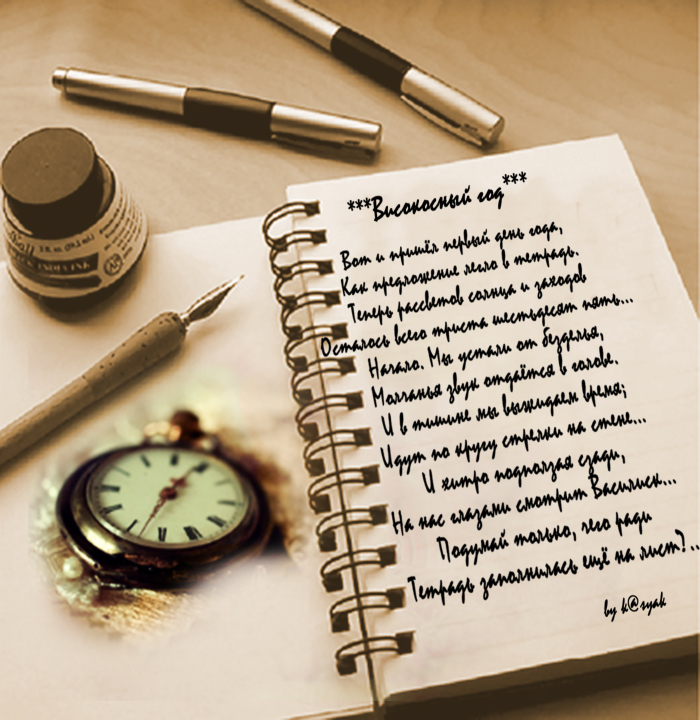 ***Високосный год***
Вот и пришёл первый день года,
Как предложение легло в тетрадь.
Теперь рассветов солнца и заходов
Осталось всего триста шестьдесят пять...
Начало. Мы устали от безделья,
Молчанья звук отдаётся в голове.
И в тишине мы выжидаем время;
Идут по кругу стрелки на стене...
И хитро подползая сзади,
На нас глазами смотрит Василиск...
Подумай только, чего ради
Тетрадь заполнилась ещё на лист?..
by k@syak